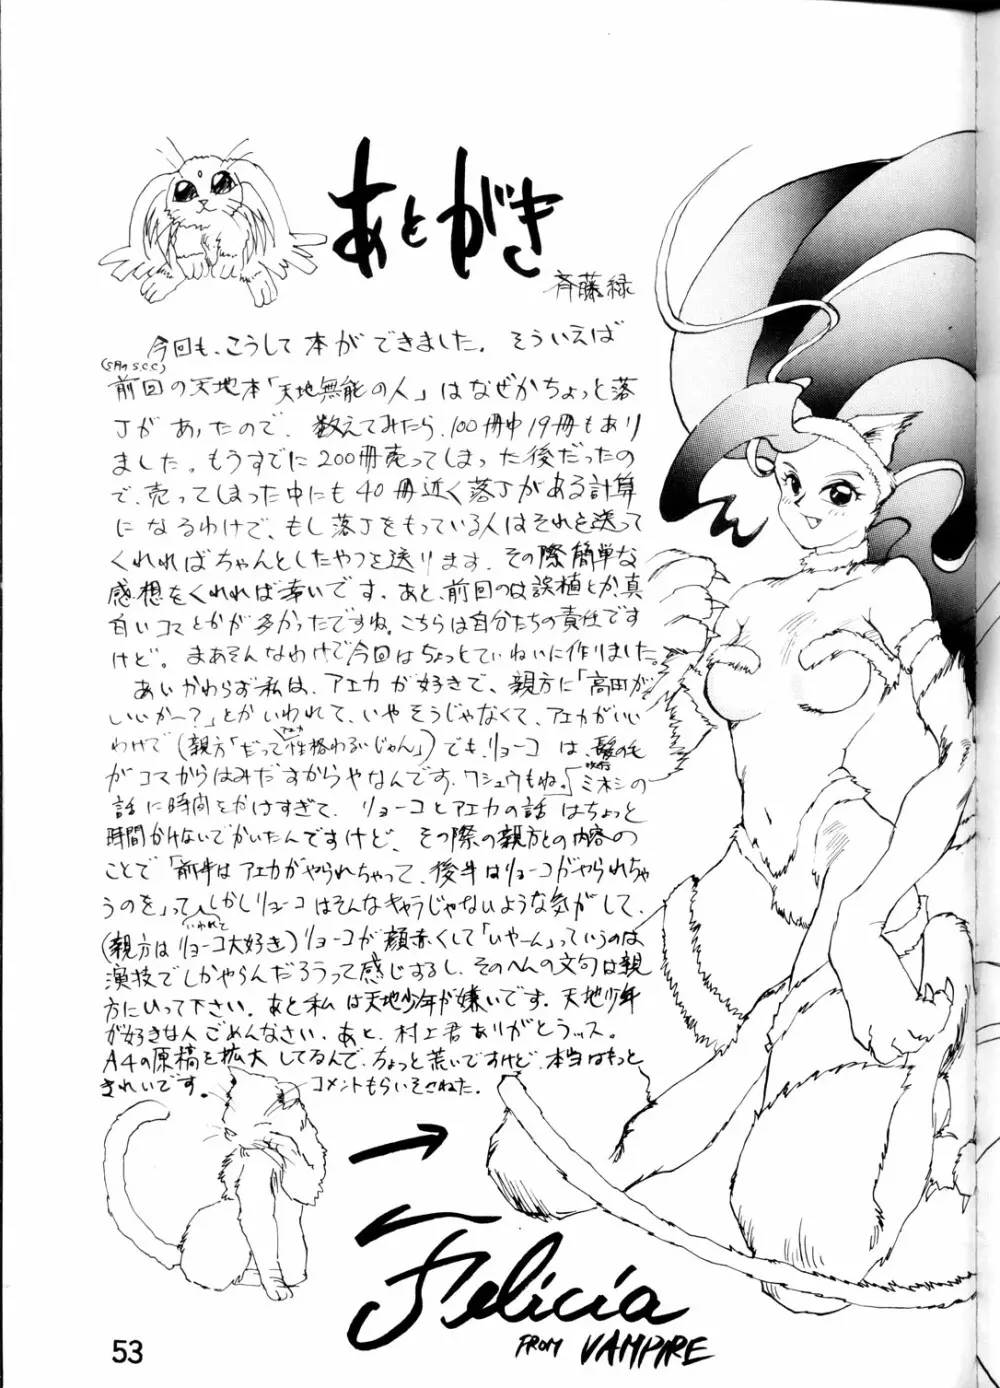 あとがき
斉藤緑
今回も、こうして本ができました。そういえば
(5月のS.C.C)
前回の天地本「天地無能の人」はなぜかちょっと落
丁があったので、数えてみたら、100冊中19冊もあり
ました。もうすでに200冊売ってしまった後だったの
で、売ってしまった中にも40冊近く落丁がある計算
になるわけで、もし落丁をもっている人はそれを送って
くれればちゃんとしたやつを送ります。その際簡単な
感想をくれれば幸いです。あと、前回のは誤植とか、真
白いコマとかが多かったですね。こちらは自分たちの責任です
けど。まあそんなわけで今回はちょっとていねいに作りました。
あいかわらず私は、アエカが好きで、親方に「高田が
いいかー?」とかいわれて、いやそうじゃなくて、アエカがいい
わけで(親方「だってアエカ性格わるいじゃん」)でも、リョーコは、髪の毛
がコマからはみだすからやなんです。ワシュウもね。「ミネシの
話に時間をかけすぎて、リョーコとアエカの話はちょっと
時間かけないでかいたんですけど、その際の親方との内容の
ことで「前半はアエカがやられちゃって、後半はリョーコがやられちゃ
うのを」っていわれてしかしリョーコはそんなキャラじゃないような気がして、
(親方はリョーコ大好き)リョーコが顔赤くして「いやーん」っていうのは
演技でしかやらんだろうって感じするし、そのへんの文句は親
方にいって下さい。あと私は天地少年が嫌いです。天地少年
が好きな人ごめんなさい。あと、村上君ありがとうッス。
A4の原稿を拡大してるんで、ちょっと荒いですけど、本当はもっと
きれいです。
コメントもらいそこねた。
Felicia
FROM VAMPIRE
53